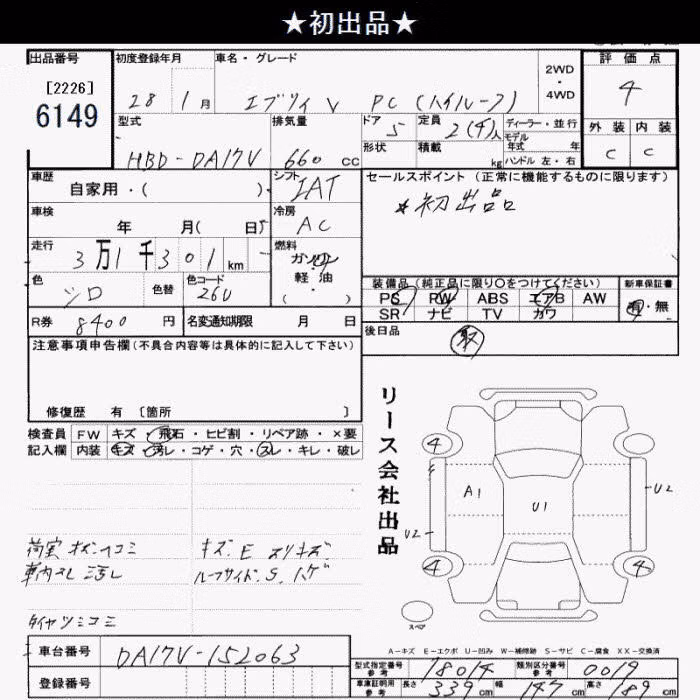 ★初出品★
出品番号 初度登録年月 車名・グレード 2WD・4WD 評価点
[2226]
6149
28 1月 エブリイV PC (ハイルーフ) 4
型式 排気量 ドア 定員 ディーラー・並行 外装 内装
HBD-DA17V 660 cc 5 2(4)人 モデル年式 年 C C
形状 積載 kg ハンドル 左・右
車歴 シフト セールスポイント (正常に機能するものに限ります)
自家用・( ) IAT ★初出品
車検 冷房
年 月( 日) AC
走行 燃料
3万1千301km ガソリン・軽油・( )
色 色替 色コード 装備品(純正品に限り○をつけてください) 新車保証書
シロ 26U PS PW ABS エアB AW 有・無
SR ナビ TV カワ
R券 8400円 名変通知期限 月 日 後日品
注意事項申告欄(不具合内容等は具体的に記入して下さい)
修復歴 有 [箇所 ]
検査員 FW キズ・飛石・ヒビ割・リペア跡・×要
記入欄 内装 キズ・汚レ・コゲ・穴・スレ・キレ・破レ
リース会社出品
4
A1 U1 U2
U2
4 4
スペア
キズ.E スリキズ.
車内スレ 汚レ ルーフサイド S. ハゲ
A-キズ E-エクボ U-凹み W-補修跡 S-サビ C-腐食 XX-交換済
車台番号 DA17V-152063
登録番号
型式指定番号 参考 18014 類別区分番号 参考 0019
車庫証明用 参考 長さ 339cm 幅 147cm 高さ 189cm